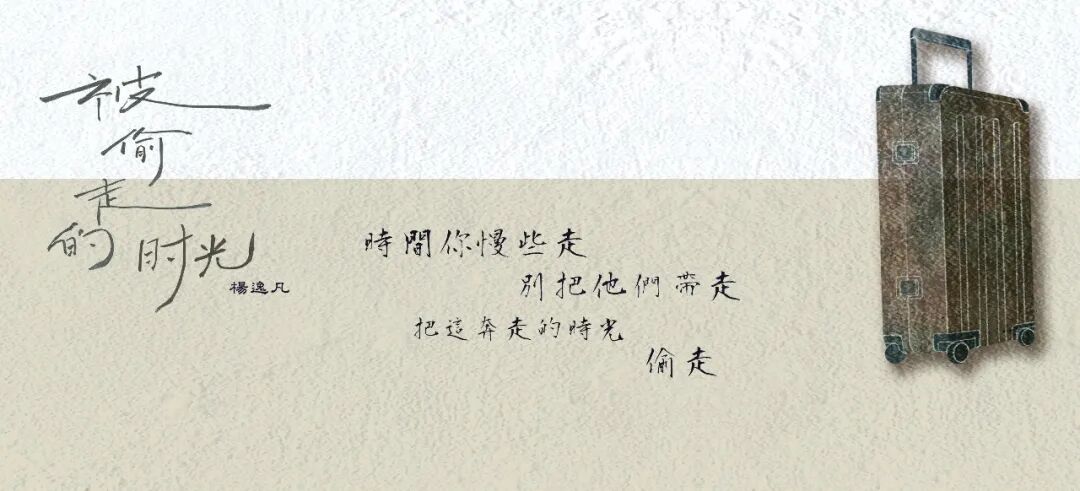 被
偷
走
的时光
楊逸凡
時間你慢些走
別把他們帶走
把這奔走的時光
偷走